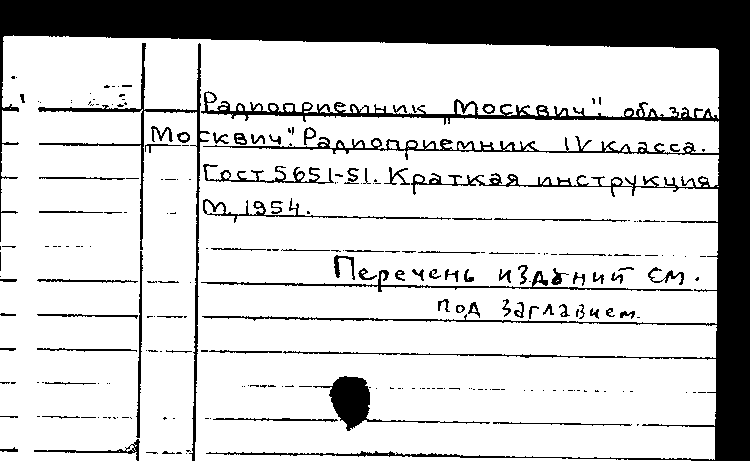 Радиоприемник „Москвич". обл. загл.
„Москвич". Радиоприемник IV класса.
Гост 5651-51. Краткая инструкция.
М., 1954.
Перечень изданий см.
под заглавием.